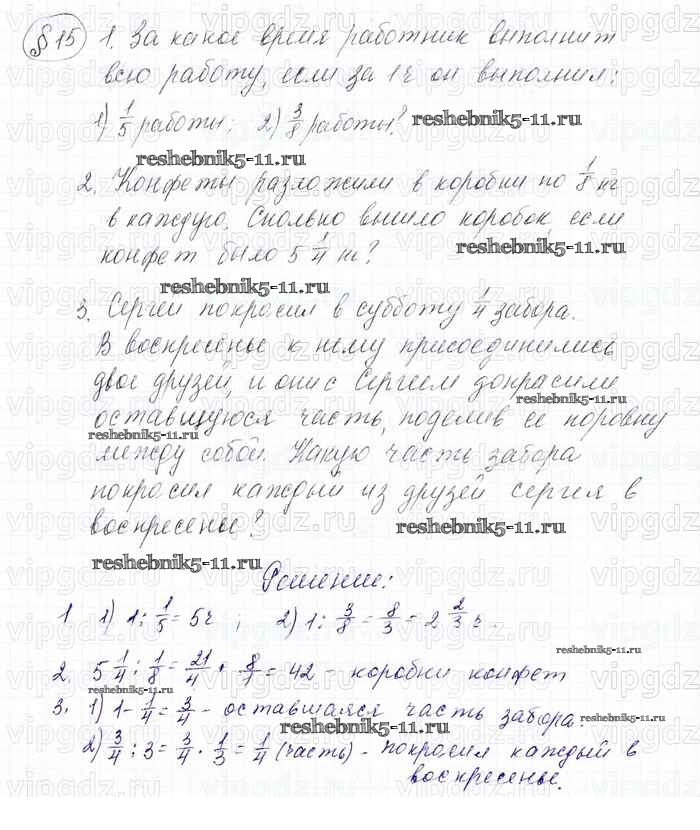 §15 1. За какое время работник выполнит
всю работу, если за 1ч он выполнил:
1) 1/5 работы; 2) 3/8 работы?
reshebnik5-11.ru
reshebnik5-11.ru
2. Конфеты разложили в коробки по 1/8 кг
в каждую. Сколько вышло коробок, если
конфет было 5 1/4 кг?
reshebnik5-11.ru
reshebnik5-11.ru
3. Сергей покрасил в субботу 1/4 забора.
В воскресенье к нему присоединились
двое друзей, и они с Сергеем докрасили
reshebnik5-11.ru
оставшуюся часть, поделив её поровну
reshebnik5-11.ru
между собой. Какую часть забора
покрасил каждый из друзей Сергея в
воскресенье?
reshebnik5-11.ru
reshebnik5-11.ru
Решение:
1 1) 1 : 1/5 = 5ч ; 2) 1 : 3/8 = 8/3 = 2 2/3 ч.
reshebnik5-11.ru
2. 5 1/4 : 1/8 = 21/4 · 8/1 = 42 - коробки конфет
reshebnik5-11.ru
3. 1) 1 - 1/4 = 3/4 - оставшаяся часть забора.
reshebnik5-11.ru
2) 3/4 : 3 = 3/4 · 1/3 = 1/4 (часть) - покрасил каждый в
воскресенье.